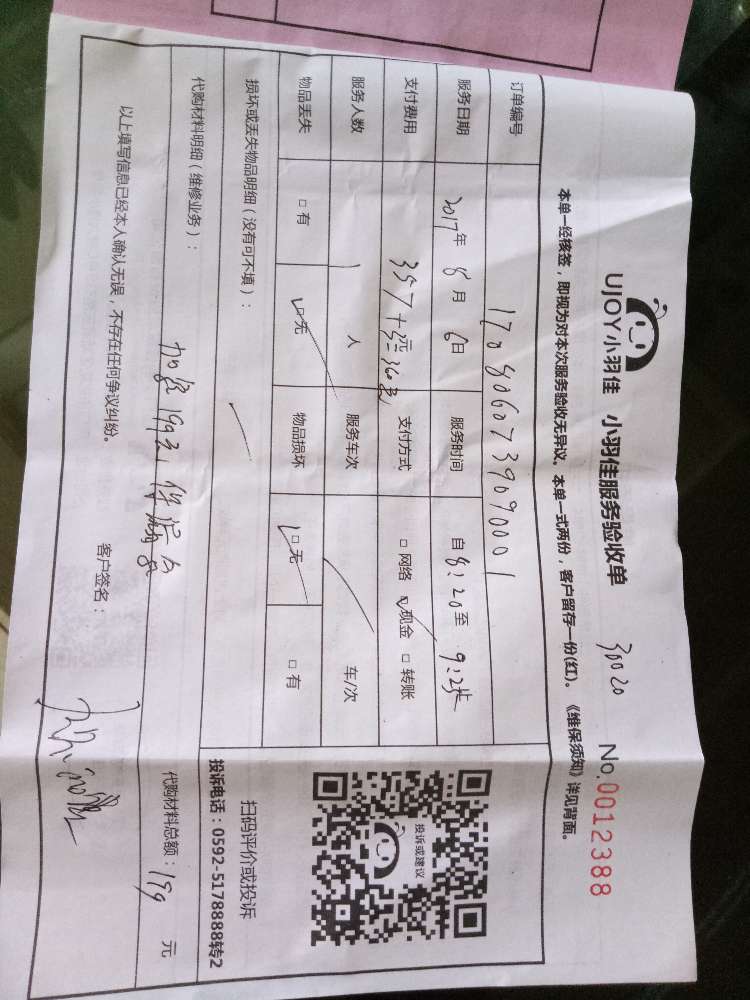 UJOY小羽佳 小羽佳服务验收单 30020 No.0012388
本单一经核签，即视为对本次服务验收无异议。本单一式两份，客户留存一份(红)。《维保须知》详见背面。
订单编号 1708060739090001
服务日期 2017年 8月 6日 服务时间 自 8:20 至 9:25
支付费用 357+3元=360元 支付方式 □网络 ☑现金 □转账
服务人数 1 人 服务车次 车/次
物品丢失 □有 ☑无 物品损坏 ☑无 □有
损坏或丢失物品明细（没有可不填）：
代购材料明细（维修业务）：
代购材料总额：199 元
以上填写信息已经本人确认无误，不存在任何争议纠纷。
客户签名：
投诉或建议
扫码评价或投诉
投诉电话：0592-5178888转2